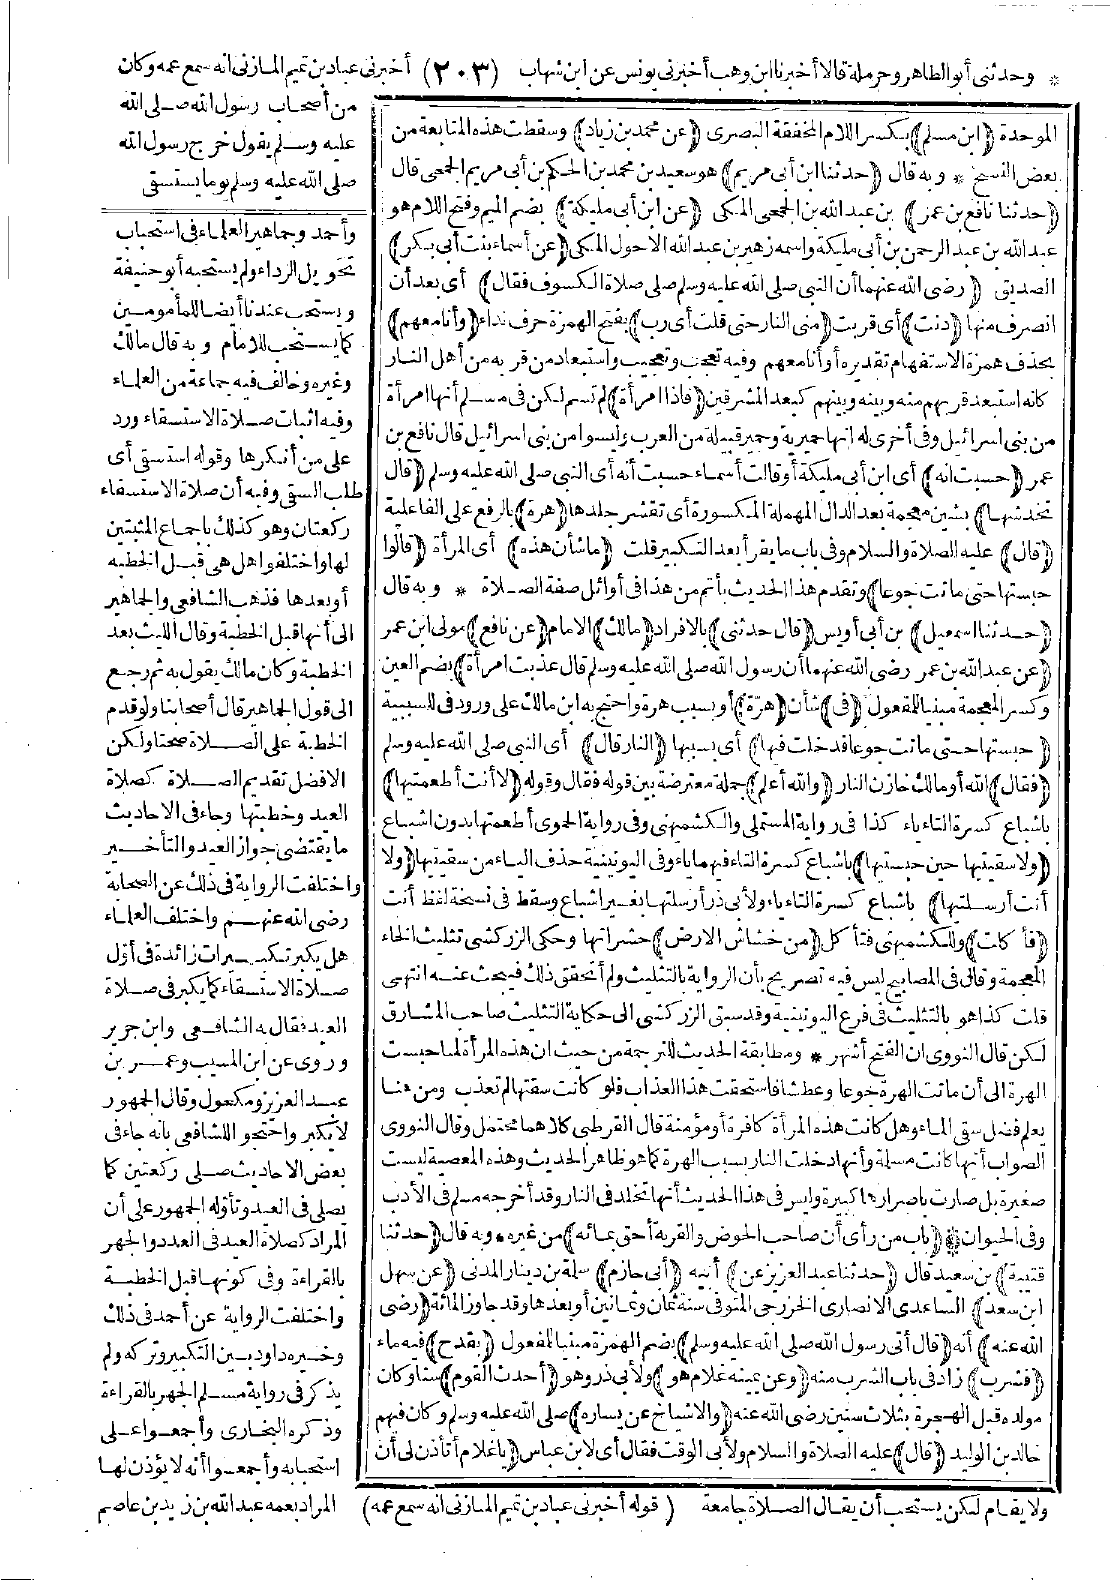 * وحدثنى أبو الطاهر وحرملة قالا أخبرنا ابن وهب أخبرنى يونس عن ابن شهاب (٢٠٣) أخبرنى عباد بن تميم المازنى انه سمع عمه وكان
من أصحاب رسول الله صلى الله
عليه وسلم يقول خرج رسول الله
صلى الله عليه وسلم يوما يستسقى
الموحدة (ابن مسلم) بكسر اللام المخففة البصرى (عن محمد بن زياد) وسقطت هذه المتابعة من
بعض النسخ * وبه قال (حدثنا ابن أبى مريم) هو سعيد بن محمد بن الحكم بن أبى مريم الجمعى قال
(حدثنا نافع بن عمر) بن عبد الله بن الجمعى المكى (عن ابن أبى مليكة) بضم الميم وفتح اللام هو
عبد الله بن عبد الرحمن بن أبى مليكة واسمه زهير بن عبد الله الاحول المكى (عن أسماء بنت أبى بكر)
الصديق (رضى الله عنهما أن النبى صلى الله عليه وسلم صلى صلاة الكسوف فقال) أى بعد أن
انصرف منها (دنت) أى قربت (منى النار حتى قلت أى رب) بفتح الهمزة حرف نداء (وأنا معهم)
بحذف همزة الاستفهام تقديره أوأنا معهم وفيه تعجب وتعجيب واستبعاد من قربه من أهل النار
كانه استبعد قربهم منه وبينه وبينهم كبعد المشرقين (فاذا امرأة) لم تسم لكن فى مسلم أنها امرأة
من بنى اسرائيل وفى أخرى له انها حميرية وحمير قبيلة من العرب وليسوا من بنى اسرائيل قال نافع بن
عمر (حسبت انه) أى ابن أبى مليكة أو قالت أسماء حسبت أنه أى النبى صلى الله عليه وسلم (قال
تخدشها) بشين معجمة بعد الدال المهملة المكسورة أى تقشر جلدها (هرة) بالرفع على الفاعلية
(قال) عليه الصلاة والسلام وفى باب ما يقرأ بعد التكبير قلت (ما شأن هذه) أى المرأة (قالوا
حبستها حتى ماتت جوعا) وتقدم هذا الحديث بأتم من هذا فى أوائل صفة الصلاة * وبه قال
(حدثنا اسمعيل) بن أبى أويس (قال حدثنى) بالافراد (مالك) الامام (عن نافع) مولى ابن عمر
(عن عبد الله بن عمر رضى الله عنهما أن رسول الله صلى الله عليه وسلم قال عذبت امرأة) بضم العين
وكسر المعجمة مبنيا للمفعول (فى) شأن (هرة) أو بسبب هرة واحتج به ابن مالك على ورود فى للسببية
(حبستها حتى ماتت جوعا فدخلت فيها) أى بسببها (النار قال) أى النبى صلى الله عليه وسلم
(فقال) الله أو مالك خازن النار (والله أعلم) جملة معترضة بين قوله فقال وقوله (لا أنت أطعمتيها)
باشباع كسرة التاء ياء كذا فى رواية المستملى والكشميهنى وفى رواية الحموى أطعمتها بدون اشباع
(ولا سقيتيها حين حبستيها) باشباع كسرة التاء فيهما ياء وفى اليونينية حذف الياء من سقيتيها (ولا
أنت أرسلتيها) باشباع كسرة التاء ياء ولأبى ذر أرسلتها بغير اشباع وسقط فى نسخة لفظ أنت
(فأكلت) وللكشميهنى فتأكل (من خشاش الارض) حشراتها وحكى الزركشى تثليث الخاء
المعجمة وقال فى المصابيح ليس فيه تصريح بأن الرواية بالتثليث ولم أتحقق ذلك فيبحث عنه انتهى
قلت كذا هو بالتثليث فى فرع اليونينية وقد سبق الزركشى الى حكاية التثليث صاحب المشارق
لكن قال النووى ان الفتح أشهر * ومطابقة الحديث للترجمة من حيث ان هذه المرأة لما حبست
الهرة الى أن ماتت الهرة جوعا وعطشا فاستحقت هذا العذاب فلو كانت سقتها لم تعذب ومن هنا
يعلم فضل سقى الماء وهل كانت هذه المرأة كافرة أو مؤمنة قال القرطبى كلاهما محتمل وقال النووى
الصواب أنها كانت مسلمة وأنها دخلت النار بسبب الهرة كما هو ظاهر الحديث وهذه المعصية ليست
صغيرة بل صارت باصرارها كبيرة وليس فى هذا الحديث أنها تخلد فى النار وقد أخرجه مسلم فى الأدب
وفى الحيوان * (باب من رأى أن صاحب الحوض والقربة أحق بمائه) من غيره * وبه قال (حدثنا
قتيبة) بن سعيد قال (حدثنا عبد العزيز عن) أبيه (أبى حازم) سلمة بن دينار المدنى (عن سهل
ابن سعد) الساعدى الانصارى الخزرجى المتوفى سنة ثمان وثمانين أو بعدها وقد جاوز المائة (رضى
الله عنه) أنه (قال أتى رسول الله صلى الله عليه وسلم) بضم الهمزة مبنيا للمفعول (بقدح) فيه ماء
(فشرب) زاد فى باب الشرب منه (وعن يمينه غلام هو) ولأبى ذر وهو (أحدث القوم) سنا وكان
مولده قبل الهجرة بثلاث سنين رضى الله عنه (والاشياخ عن يساره) صلى الله عليه وسلم وكان فيهم
خالد بن الوليد (قال) عليه الصلاة والسلام ولأبى الوقت فقال أى لابن عباس (يا غلام أتأذن لى أن
وأحمد وجماهير العلماء فى استحباب
تحويل الرداء ولم يستحبه أبو حنيفة
ويستحب عندنا أيضا للمأمومين
كما يستحب للامام وبه قال مالك
وغيره وخالف فيه جماعة من العلماء
وفيه اثبات صلاة الاستسقاء ورد
على من أنكرها وقوله استسقى أى
طلب السقى وفيه أن صلاة الاستسقاء
ركعتان وهو كذلك باجماع المثبتين
لها واختلفوا هل هى قبل الخطبة
أو بعدها فذهب الشافعى والجماهير
الى أنها قبل الخطبة وقال الليث بعد
الخطبة وكان مالك يقول به ثم رجع
الى قول الجماهير قال أصحابنا ولو قدم
الخطبة على الصلاة صحتا ولكن
الافضل تقديم الصلاة كصلاة
العيد وخطبتها وجاء فى الاحاديث
ما يقتضى جواز العيد والتأخير
واختلفت الرواية فى ذلك عن الصحابة
رضى الله عنهم واختلف العلماء
هل يكبر تكبيرات زائدة فى أول
صلاة الاستسقاء كما يكبر فى صلاة
العيد فقال به الشافعى وابن جرير
وروى عن ابن المسيب وعمر بن
عبد العزيز ومكحول وقال الجمهور
لا يكبر واحتجوا للشافعى بانه جاء فى
بعض الاحاديث صلى ركعتين كما
يصلى فى العيد وتأوله الجمهور على أن
المراد كصلاة العيد فى العدد والجهر
بالقراءة وفى كونها قبل الخطبة
واختلفت الرواية عن أحمد فى ذلك
وخيره داود بين التكبير وتركه ولم
يذكر فى رواية مسلم الجهر بالقراءة
وذكره البخارى وأجمعوا على
استحبابه وأجمعوا أنه لا يؤذن لها
ولا يقام لكن يستحب أن يقال الصلاة جامعة (قوله أخبرنى عباد بن تميم المازنى انه سمع عمه) المراد بعمه عبد الله بن زيد بن عاصم